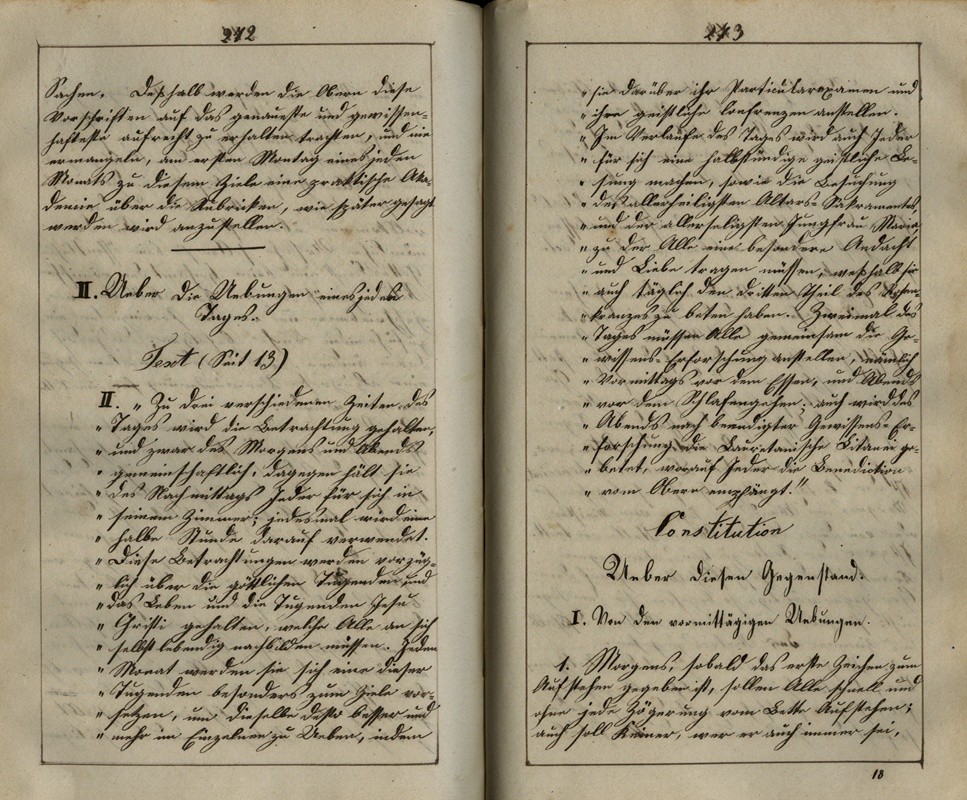 272
Sachen. Deßhalb werden die Obern diese
Vorschriften auf das genaueste und gewissen-
hafteste aufrecht zu erhalten trachten, und nie
ermangeln, am ersten Montag eines jeden
Monats zu diesem Ziele eine praktische Aka-
demie über die Rubriken, wie später gesagt
werden wird anzustellen.
II. Ueber die Uebungen eines jeden
Tages.
Text (Seit 13)
II. „ Zu drei verschiedenen Zeiten des
„ Tages wird die Betrachtung gehalten,
„ und zwar des Morgens und Abends
„ gemeinschaftlich, dagegen hält sie
„ des Nachmittags Jeder für sich in
„ seinem Zimmer; jedesmal wird eine
„ halbe Stunde darauf verwendet.
„ Diese Betrachtungen werden vorzüg-
„ lich über die göttlichen Tugenden und
„ das Leben und die Tugenden Jesu
„ Christi gehalten, welche Alle an sich
„ selbst lebendig nachbilden müssen. Jeden
„ Monat werden sie sich eine dieser
„ Tugenden besonders zum Ziele vor-
„ setzen, um dieselbe desto besser und
„ mehr im Einzelnen zu Ueben, indem
273
„ sie darüber ihr Particularexamen und
„ ihre geistliche Confrenzen anstellen.
„ Im Verlaufe des Tages wird auch Jeder
„ für sich eine halbstündige geistliche Le-
„ sung machen, sowie die Besuchung
„ des allerheiligsten Altars-Sakramentes,
„ und der allerseligsten Jungfrau Maria,
„ zu der Alle eine besondere Andacht
„ und Liebe tragen müssen, weßhalb sie
„ auch täglich den dritten Theil des Rosen-
„ kranzes zu beten haben. Zweimal des
„ Tages müssen Alle gemeinsam die Ge-
„ wissens-Erforschung anstellen, nämlich
„ Vormittags vor dem Essen, und Abends
„ vor dem Schlafengehen; auch wird des
„ Abends nach beendigter Gewissens-Er-
„ forschung die Lauretanische Litanei ge-
„ betet, worauf Jeder die Benediction
„ vom Obern empfängt."
Constitution
Ueber diesen Gegenstand.
I. Von den vormittägigen Uebungen.
1. Morgens, sobald das erste Zeichen zum
Aufstehen gegeben ist, sollen Alle schnell und
ohne jede Zögerung vom Bette Aufstehen;
auch soll Keiner, wer er auch immer sei,
18